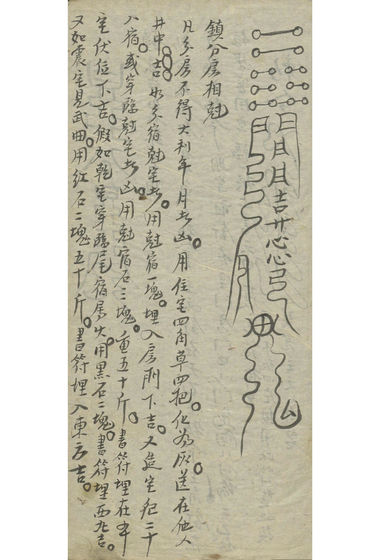 鎮分房相尅
凡分房不得大利年月者凶。用住宅四角草四把。化為灰送在他人
井中吉。如分宿尅宅者。用尅宿一塊。埋入房前下吉。又造宅犯二十
八宿。或穿臨尅宅者凶。用尅宿石三塊。重五十斤。書符埋在本
宅伏位下吉。假如乾宅穿臨尾宿属火。用黑石二塊。書符埋西北吉。
又如震宅見武曲。用紅石二塊五十斤。書符埋入東方吉。